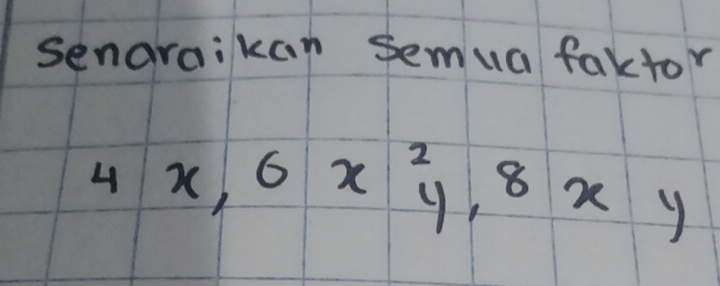 Senaraikan semua faktor
4x, 6x²y, 8xy